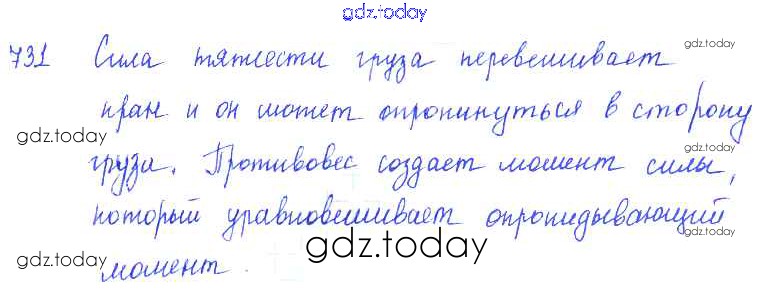 gdz.today
731 Сила тяжести груза перевешивает
gdz.today
кран и он может опрокинуться в сторону
gdz.today
груза. Противовес создает момент силы,
gdz.today
который уравновешивает опрокидывающий
gdz.today
gdz.today
gdz.today
момент.